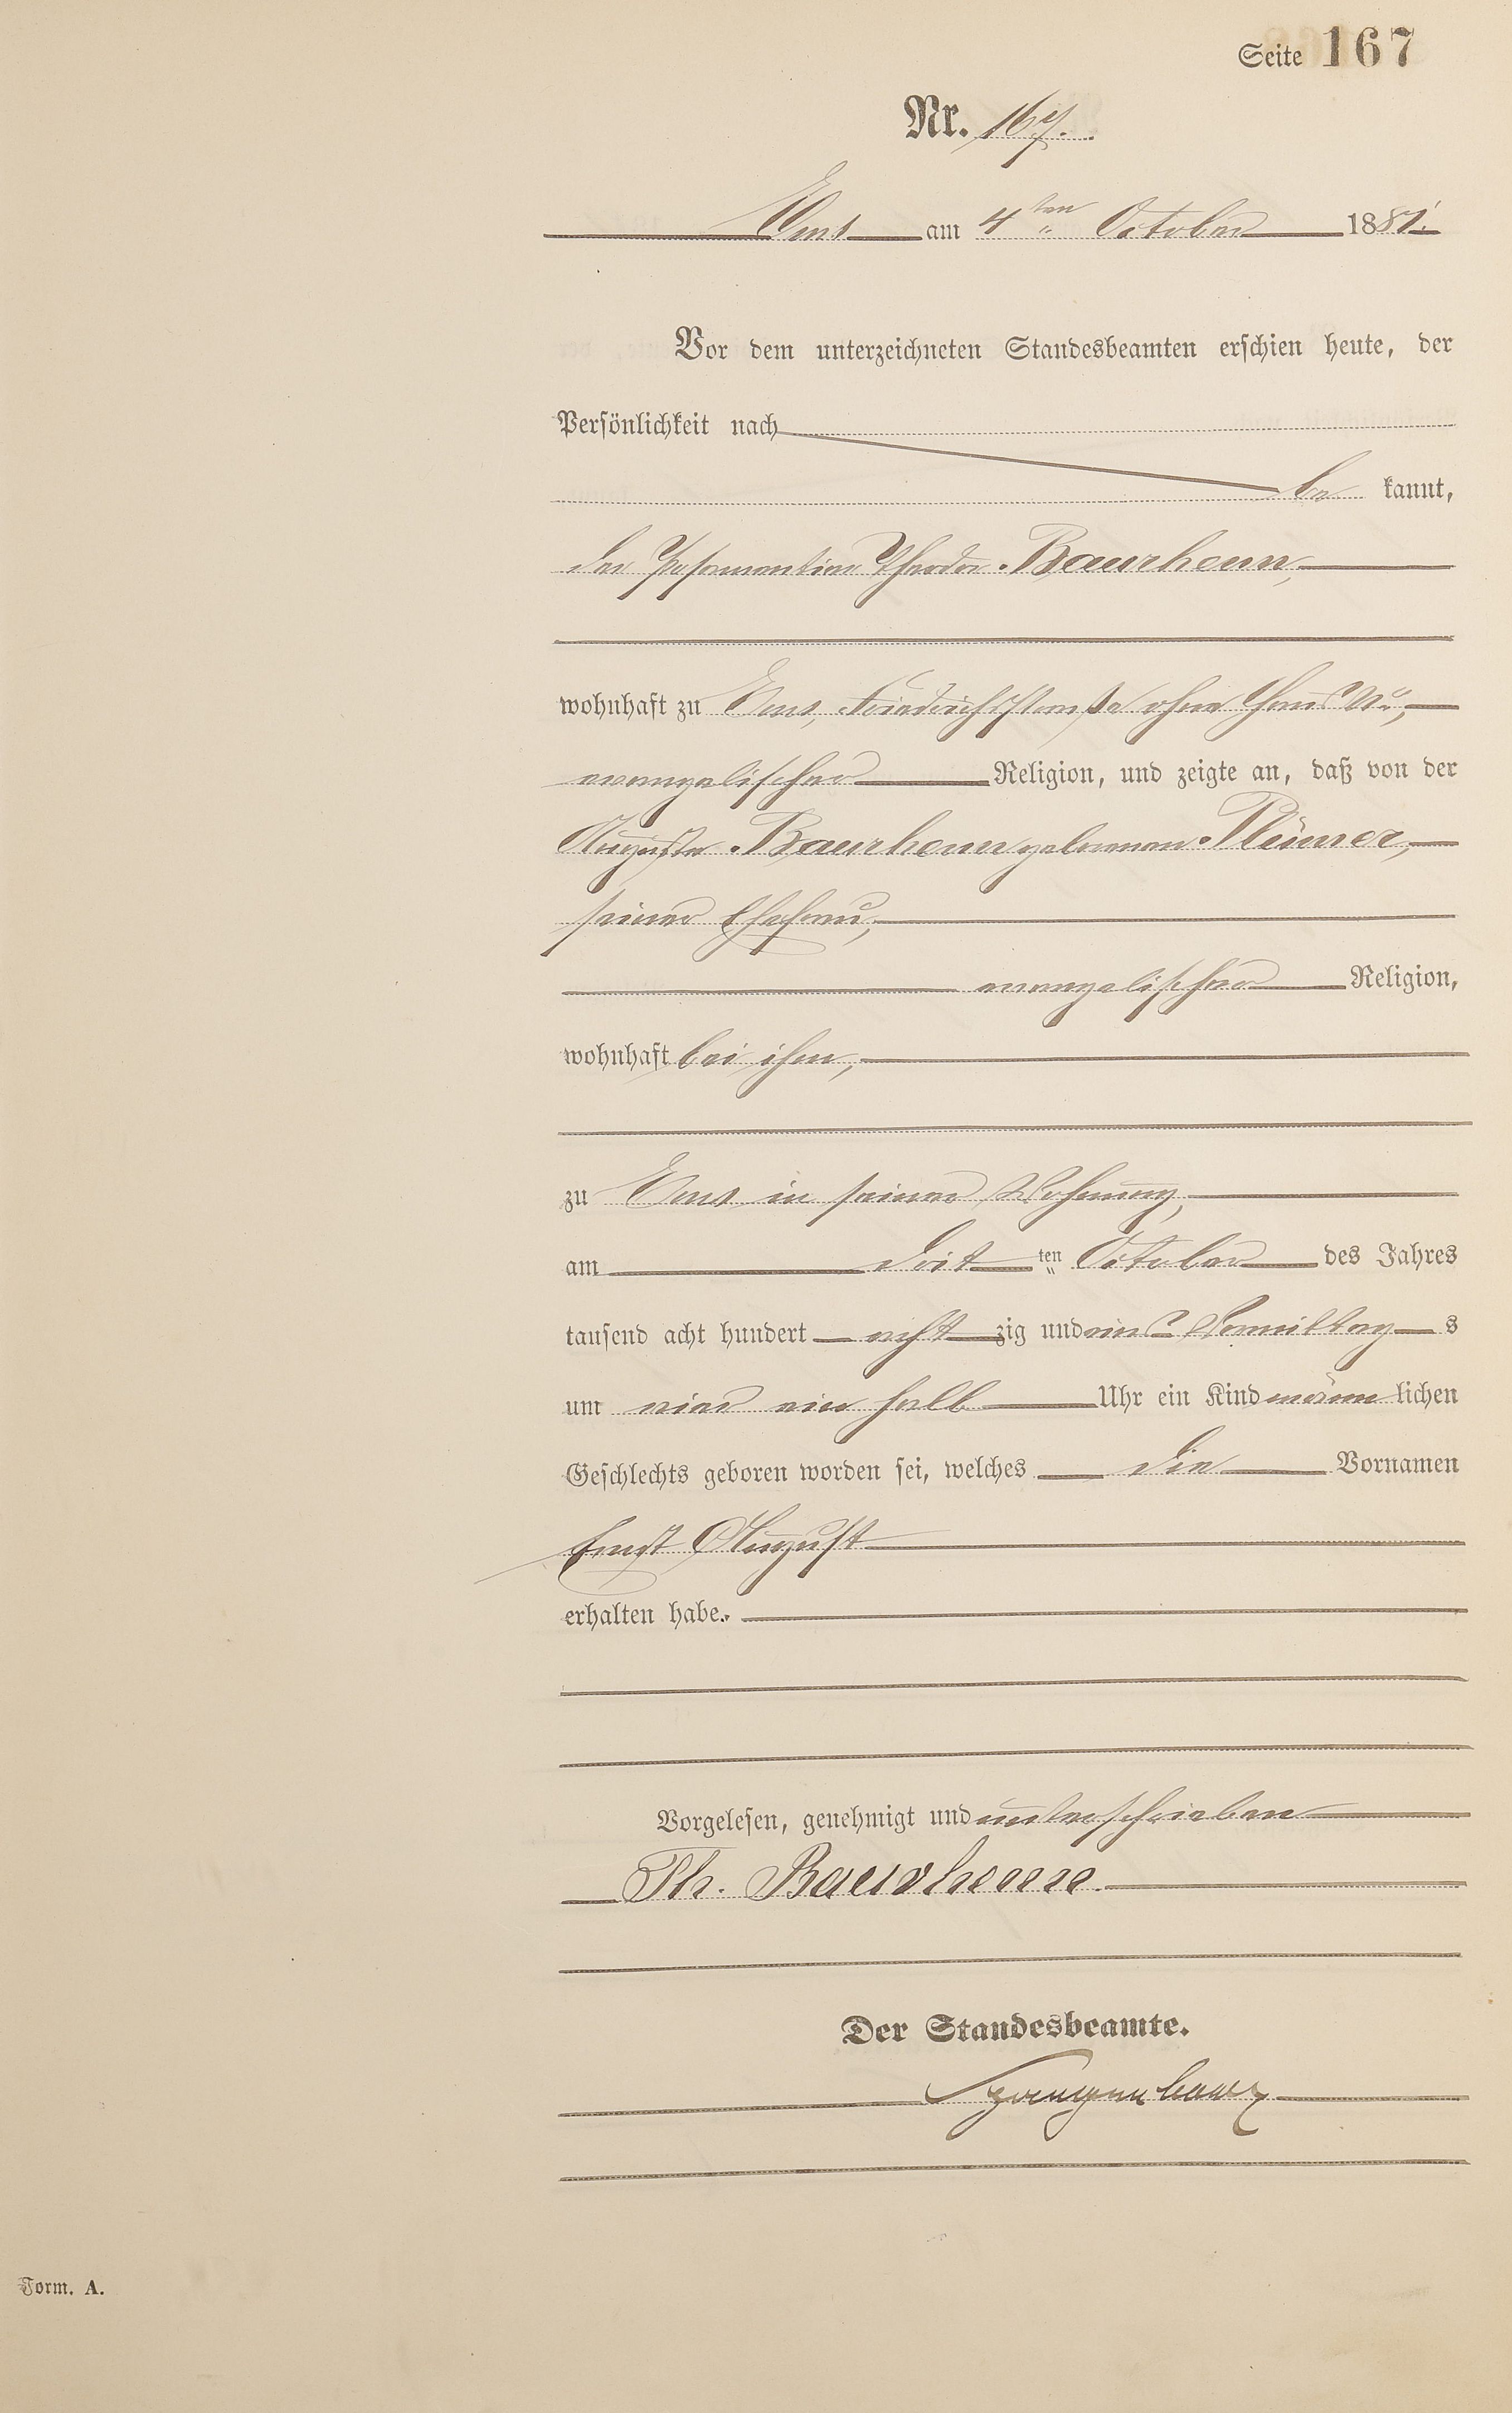 Seite 167
Nr. 167.
Ems am 4ten October 1881.
Vor dem unterzeichneten Standesbeamten erschien heute, der
Persönlichkeit nach
be kannt,
der Posamentier Theodor Baurhenn,
wohnhaft zu Ems, Friedrichsstraße ohne Haus No,
evangelischer Religion, und zeigte an, daß von der
Auguste Baurhenn geborenen Plümer,
seiner Ehefrau,
evangelischer Religion,
wohnhaft bei ihm,
zu Ems in seiner Wohnung,
am dritten October des Jahres
tausend acht hundert achtzig und eins Vormittags
um vier ein halb Uhr ein Kind männlichen
Geschlechts geboren worden sei, welches die Vornamen
Ernst August
erhalten habe.
Vorgelesen, genehmigt und unterschrieben
Th. Baurhenn
Der Standesbeamte.
Form. A.